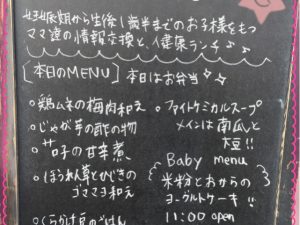 妊娠期から生後1歳半までのお子様をもつ
ママ達の情報交換と、健康ランチ♪♪
[本日のMENU] 本日はお弁当
○鶏ムネの梅肉和え
○じゃが芋の酢の物
○茄子の甘辛煮
○ほうれん草とひじきの
ゴママヨ和え
ごはん
○ファイトケミカルスープ
メインは南瓜と
大豆!!
Baby menu
米粉とおからの
ヨーグルトケーキ!!
11:00 open